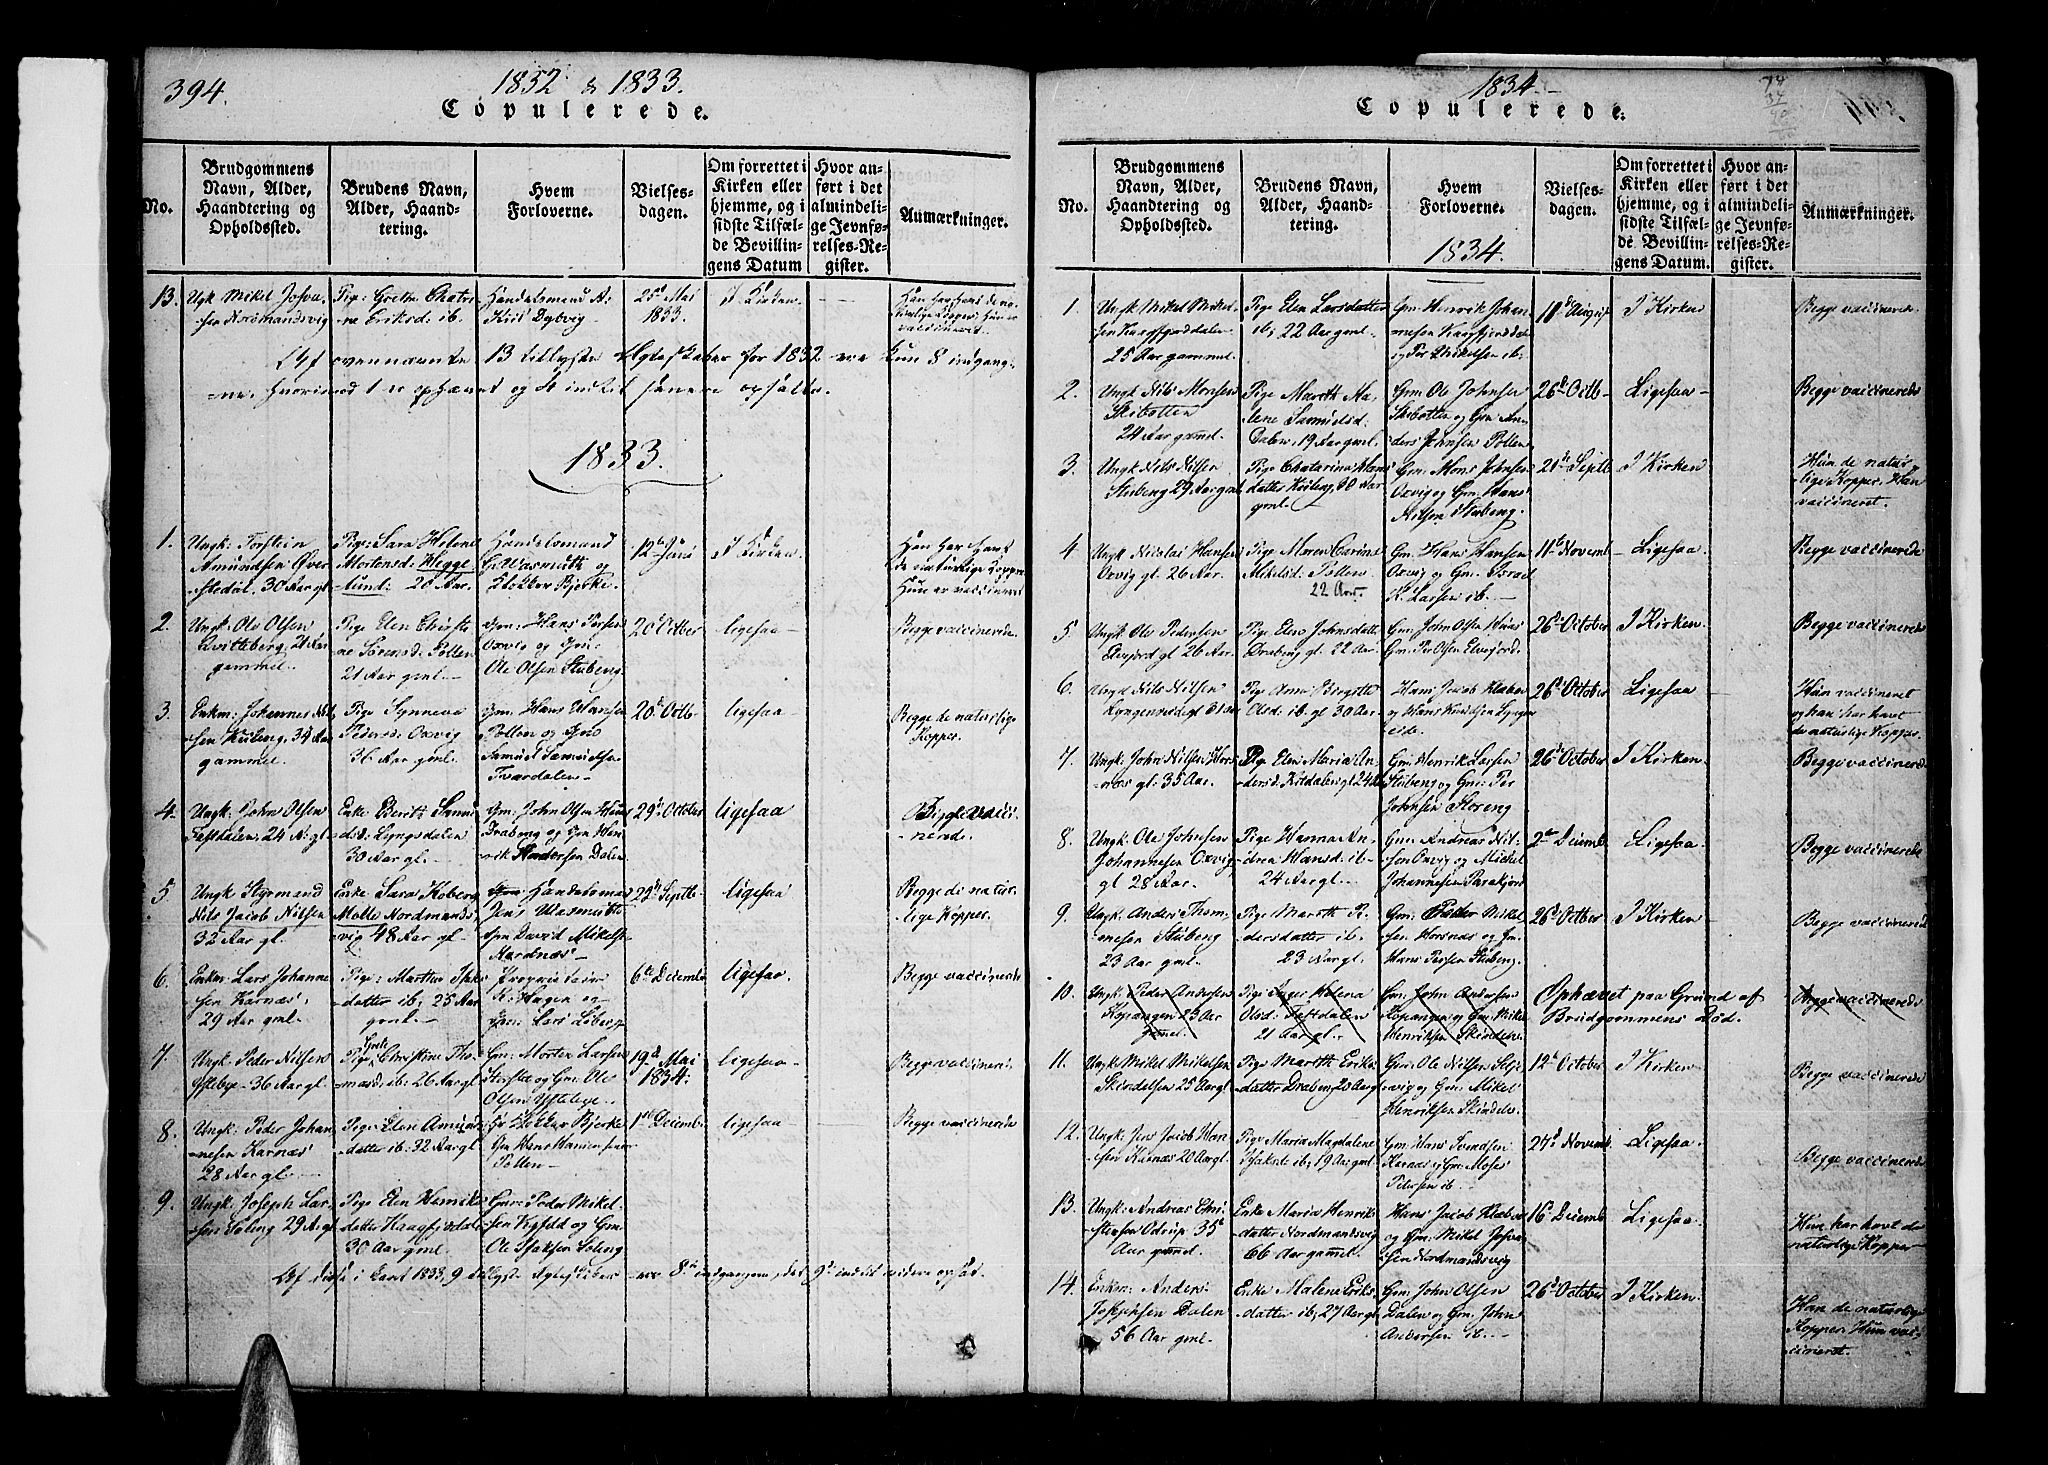 394.
1832 & 1833.
Copulerede.
No.
Brudgommens
Navn, Alder,
Haandtering og
Opholdssted.
Brudens Navn,
Alder, Haand-
tering.
Hvem
Forloverne.
Vielses-
dagen.
Om forrettet i
Kirken eller
hjemme, og i
sidste Tilfæl-
de Bevillin-
gens Datum
Hvor an-
ført i det
almindeli-
ge Jevnfø-
relses-Re-
gister.
Anmærkninger.
13.
Ungk. Mikel Josva-
sen Nordmandsvig
Pige: Grethe Chatri-
ne Eriksd: ib.
Handelsmand
Dybvig
25de Mai
1833.
I Kirken
Af ovennævnte 13 tillyste Ægteskaber for 1832 ere kun 8 indgang-
ne, hvorimod 1 er ophævet og 4 indtil senere opsatte.
1833.
1.
Ungk: Torstein
Amundsen Over-
stedal, 30 Aar gl
Pige: Sara Helene
Mortensd: Hegge-
lund: 20 Aar.
Handelsmand
Wasmuth og
Klokker Bjerke.
12te Juni
I Kirken
Han har havt
de naturlige Kopper
Hun er vaccineret
2.
Ungk: Ole Olsen
Kvitteberg, 21 Aar
gammel.
Pige Elen Christi-
ne Sørensd: Pollen
21 Aar gml.
Gm: Hans Persen
Oxvig og Gm:
Ole Olsen Stubeng
20de Octber
ligesaa
Begge vaccinerede.
3.
Enkm: Johannes Nil-
sen Kileng, 34 Aar
gammel.
Pige Synneva
Pedersd: Oxvig
36 Aar gml.
Gm: Hans Hansen
Pollen og Gm:
Samuel Samuelsen
Tverdalen
20de Octb
ligesaa
Begge de naturlige
Kopper.
4.
Ungk: John Olsen
Fastdalen, 24 Ar. gl.
Enke Berith Samu-
elsd: Lyngsdalen
30 Aar gl.
Gm: John Olsen
Drabeng og Gm Hen-
rik Andersen Dalen
29de October
ligesaa
Begge vacci-
nered.
5.
Ungk: Styrmand
Nils Jacob Nilsen
32 Aar gl.
Enke Sara Koberg
Molle Nordmands-
vig 48 Aar gl.
Handelsmand
Jens Wasmuth
Gm David Mikelsen
Hardnæs
29de Septb
ligesaa
Begge de natur-
lige Kopper.
6.
Enkm: Lars Johanne-
sen Karnæs,
29 Aar gml.
Pige: Marthe
datter ib; 25 Aar
gml.
Proprietair
Hagen og
Gm: Lars Leberg
6te Decemb
ligesaa.
Begge vaccinerede
7.
Ungk: Peder Nilsen
Ytteby 36 Aar gl.
Pige Grete Christine Tho-
masd: ib: 26 Aar gl
Gm: Morten Larsen
Storstei og Gm: Ole
Olsen Ytteby.
19de Mai
1834:
ligesaa
Begge vaccineri
8.
Ungk: Peder Johan-
nesen Karnæs
28 Aar gl.
Pige: Elen Amund-
datter ib: 32 Aar gl
Hr Klokker Bjerke
Pollen
1ste Decemb
ligesaa
Begge vaccinerede
9.
Ungk: Joseph Lar-
sen Soleng 29 A. gl
Pige Elen Henriks-
datter Kaagfjorddalen
30 Aar gml.
Gm: Peder Mikel-
sen og Gm
Ole Isaksen Soleng
Af disse i Aaret 1833, 9 tillyste Ægteskaber ere 8te indgangne, det 9de indtil videre opsat.
1834.
Copulerede.
74
37
90
No.
Brudgommens
Navn, Alder,
Haandtering og
Opholdssted.
Brudens Navn,
Alder, Haand-
tering.
Hvem
Forloverne.
1834.
Vielses-
dagen.
Om forrettet i
Kirken eller
hjemme, og i
sidste Tilfæl-
de Bevillin-
gens Datum.
Hvor an-
ført i det
almindeli-
ge Jevnfø-
relses-Re-
gister.
Anmærkninger.
1.
Ungk Mikel Mikel-
sen Kaagfjorddalen
25 Aar gammel.
Pige Elen Larsdatter
ib; 22 Aar gml.
Gm: Henrik Johan-
nesen Kaagfjorddal
og Per Mikelsen ib:
18de August
I Kirken
Begge vaccinerede
2.
Ungk Nils Monsen
Skibotten
24 Aar gamel.
Pige Mareth Ma-
lene Samuelsd:
Dalen, 19 Aar gml.
Gm: Ole Johnsen
Skibotten og Gm: An-
ders Johnsen Pollen
26de Octb
Ligesaa
Begge vaccinerede
3.
Ungk: Nils Nilsen
Stubeng 29 Aar gml
Pige Chatarina Hans-
datter Kileng, 30 Aar
gml.
Gm: Mons Johnsen
Oxvig og Gm: Hans
Nilsen Stubeng.
21de Septb
I Kirken
Hun de natur-
lige Kopper, Han
vaccineret.
4
Ungk Nicolai Hansen
Oxvig gl. 26 Aar.
Pige Maren Carine
Mikelsd: Pollen
22 Aar.
Gm: Hans Hansen
Oxvig og Gm: Israel
K. Larsen ib.
11te Novemb
Ligesaa
Begge vaccinerede
5
Ungk Ole Pedersen
Elvejord gl 26 Aar.
Pige Elen Johnsdatt:
Drabeng gl. 22 Aar.
Gm: John Olsen
Gm: Per Olsen Elvejord.
26de October
I Kirken
Begge vaccinerede
6.
Ungk Nils Nilsen
Lyngenseid gl 31 Aar
Pige Anne Birgitte
Olsd: ib. gl 30 Aar.
Hans Jacob Klæboe
og Hans Knudsen Lyngs-
eide
26de October
Ligesaa
Hun vaccineret
og han har havt
de naturlige Kopper.
7.
Ungk: John Nilsen Hors-
næs gl: 35 Aar.
Pige Elen Maria An-
dersd: Kitdalen gl 24 Ar
Gm: Henrik Larsen
Stubeng og Gm: Per
Johnsen Storeng
26de October
I Kirken
Begge vaccinerede
8.
Ungk: Ole Johnsen
Johannesen Oxvig
gl 28 Aar.
Pige Hanna An-
drea Hansd: ib.
24 Aar gl.
Gm: Andreas Nil-
sen Oxvig og Mikel
Johannesen
2den Decemb
Ligesaa
Begge vaccinerede
9.
Ungk: Anders Thom-
mesen Stubeng
23 Aar gml.
Pige Mareth Pe-
dersdatter ib.
23 Aar gl.
Gm: Peder Mikel-
sen Horsnæs og Gm.
Hans Persen Stubeng.
26de Octber
I Kirken
Begge vaccinerede
10.
Ungk: Peder Andersen
Kopangen 23 Aar
gamel.
Pige Inger Helena
Olsd: Fastdalen
21 Aar gl.
Gm: John Andersen
Kopangen og Gm: Mikel
Henriksen Skindelven
Ophævet paa Grund af
Brudgommens Død.
Begge vaccinerede
11.
Ungk Mikel Mikelsen
Skindelven 25 Aar gl.
Pige Mareth Eriks-
datter Drabeng 20 Aar gl
Gm: Ole Nilsen Selje-
vig og Gm: Mikel
Henriksen Skindelv.
12te October
I Kirken
Begge vaccinerede
12.
Ungk: Jens Jacob Han-
sen Kirnæs 20 Aar gl.
Pige Maria Magdalene
Isaksdr ib, 19 Aar gml.
Gm: Hans Svendsen
Karnæs og Gm: Moses
Petersen ib.
27de Novemb.
Ligesaa
Begge vaccinerede
13.
Ungk: Andreas Chri-
stensen Odrup 35
Aar gamel.
Enke Maria Henriks-
datter Nordmandsvig
66 Aar gamel.
Hans Jacob Klæboe
og Gm: Mikel Josva-
sen Nordmandsvig
16de Decemb
Ligesaa
Hun har havt de
naturlige Kopper
14.
Enkm: Anders
Josephsen Dalen
56 Aar gml.
Enke Malene Eriks-
datter ib; 27 Aar gl.
Gm: John Olsen
Dalen og Gm: John
Andersen ib.
26de October
I Kirken.
Han de naturlige
Kopper. Hun vac-
cineret.